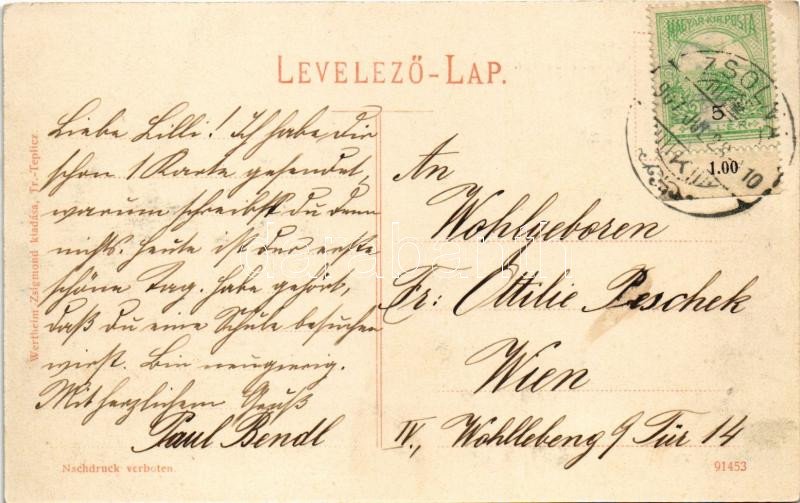 MAGYAR·KIR·POSTA
ZSOLNA
5
1.00
10
LEVELEZŐ-LAP.
Liebe Lilli! Ich habe dir
schon 1 Karte gesendet,
warum schreibst du denn
nichts. Heute ist der erste
schöne Tag. Habe gehört,
daß du eine Schule besuchen
wirst. Bin neugierig.
Mit herzlichem Gruß
Paul Bendl
An
Wohlgeboren
Fr: Ottilie Peschek
Wien
IV., Wohllebeng 9 Tür 14
Wertheim Zsigmond kiadása, Tr.-Teplicz.
Nachdruck verboten.
91453